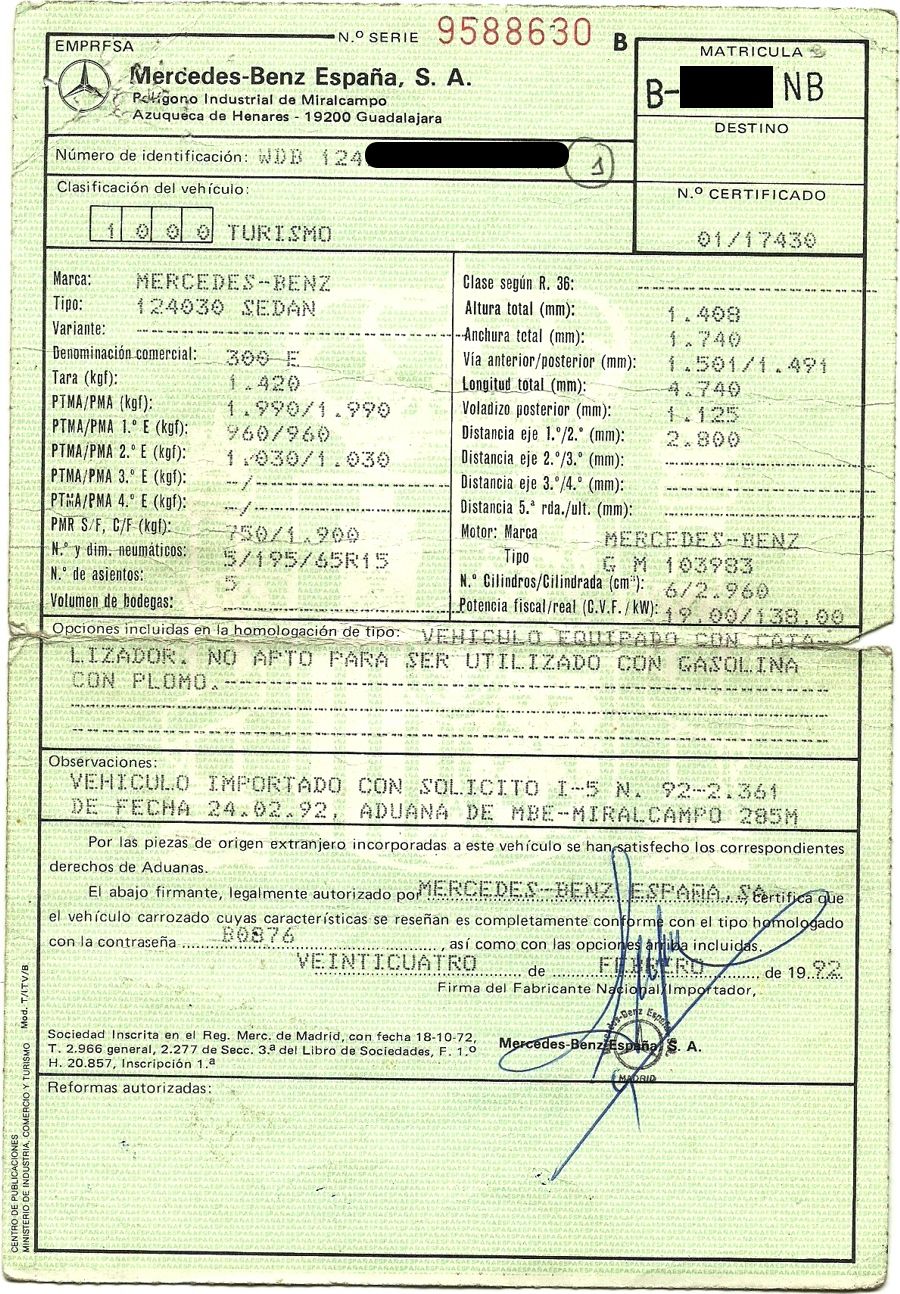 EMPRESA
N.º SERIE 9588630 B
Mercedes-Benz España, S. A.
Polígono Industrial de Miralcampo
Azuqueca de Henares - 19200 Guadalajara
MATRICULA
B- NB
DESTINO
Número de identificación: WDB 124 1
N.º CERTIFICADO
01/17430
Clasificación del vehículo:
1 0 0 0 TURISMO
Marca: MERCEDES-BENZ
Tipo: 124030 SEDAN
Variante:
Denominación comercial: 300 E
Tara (kgf): 1.420
PTMA/PMA (kgf): 1.990/1.990
PTMA/PMA 1.º E (kgf): 960/960
PTMA/PMA 2.º E (kgf): 1.030/1.030
PTMA/PMA 3.º E (kgf): -/-
PTMA/PMA 4.º E (kgf): -/-
PMR S/F, C/F (kgf): 750/1.900
N.º y dim. neumáticos: 5/195/65R15
N.º de asientos: 5
Volumen de bodegas:
Clase según R. 36:
Altura total (mm): 1.408
Anchura total (mm): 1.740
Vía anterior/posterior (mm): 1.501/1.491
Longitud total (mm): 4.740
Voladizo posterior (mm): 1.125
Distancia eje 1.º/2.º (mm): 2.800
Distancia eje 2.º/3.º (mm):
Distancia eje 3.º/4.º (mm):
Distancia 5.ª rda./ult. (mm):
Motor: Marca MERCEDES-BENZ
Tipo G M 103983
N.º Cilindros/Cilindrada (cm³): 6/2.960
Potencia fiscal/real (C.V.F./kW): 19.00/138.00
Opciones incluidas en la homologación de tipo: VEHICULO EQUIPADO CON CATA-
LIZADOR. NO APTO PARA SER UTILIZADO CON GASOLINA
CON PLOMO.
Observaciones:
VEHICULO IMPORTADO CON SOLICITO I-5 N. 92-2.361
DE FECHA 24.02.92, ADUANA DE MBE-MIRALCAMPO 285M
Por las piezas de origen extranjero incorporadas a este vehículo se han satisfecho los correspondientes
derechos de Aduanas.
El abajo firmante, legalmente autorizado por MERCEDES-BENZ ESPAÑA, SA certifica que
el vehículo carrozado cuyas características se reseñan es completamente conforme con el tipo homologado
con la contraseña B0876, así como con las opciones arriba incluidas.
VEINTICUATRO de FEBRERO de 19.92
Firma del Fabricante Nacional/Importador,
Sociedad Inscrita en el Reg. Merc. de Madrid, con fecha 18-10-72,
T. 2.966 general, 2.277 de Secc. 3.ª del Libro de Sociedades, F. 1.º
H. 20.857, Inscripción 1.ª
Mercedes-Benz España, S. A.
Mercedes-Benz España
MADRID
Reformas autorizadas:
CENTRO DE PUBLICACIONES
MINISTERIO DE INDUSTRIA, COMERCIO Y TURISMO Mod. T/ITV/B